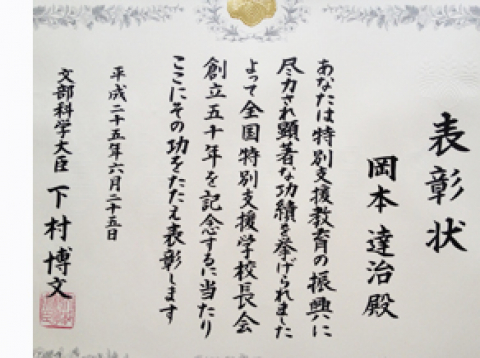 表彰状
岡本達治殿
あなたは特別支援教育の振興に
尽力され顕著な功績を挙げられました
よって全国特別支援学校長会
創立五十年を記念するに当たり
ここにその功をたたえ表彰します
平成二十五年六月二十五日
文部科学大臣 下村博文